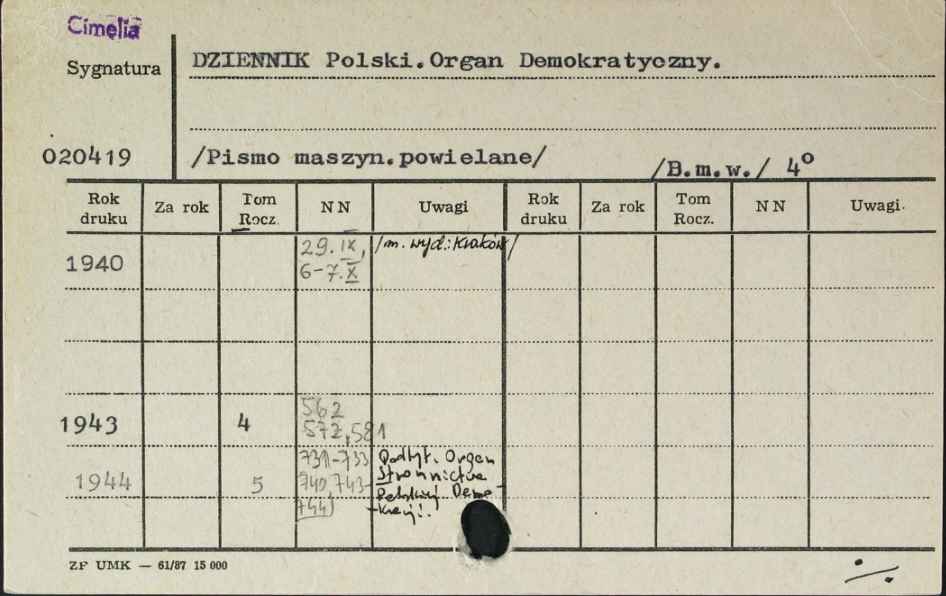 Cimelia
Sygnatura
DZIENNIK Polski.Organ Demokratyczny.
020419
/Pismo maszyn.powielane/
/B.m.w./ 4º
Rok druku Za rok Tom Rocz. NN Uwagi Rok druku Za rok Tom Rocz. NN Uwagi.
1940 29. IX, /m. wyd.: Kraków/
6-7.X
1943 4 562
572,581
1944 5 731-733 Podtyt. Organ
740,743- Stronnictwa
744) Polskiej Demo-
kracji.
ZF UMK — 61/87 15 000